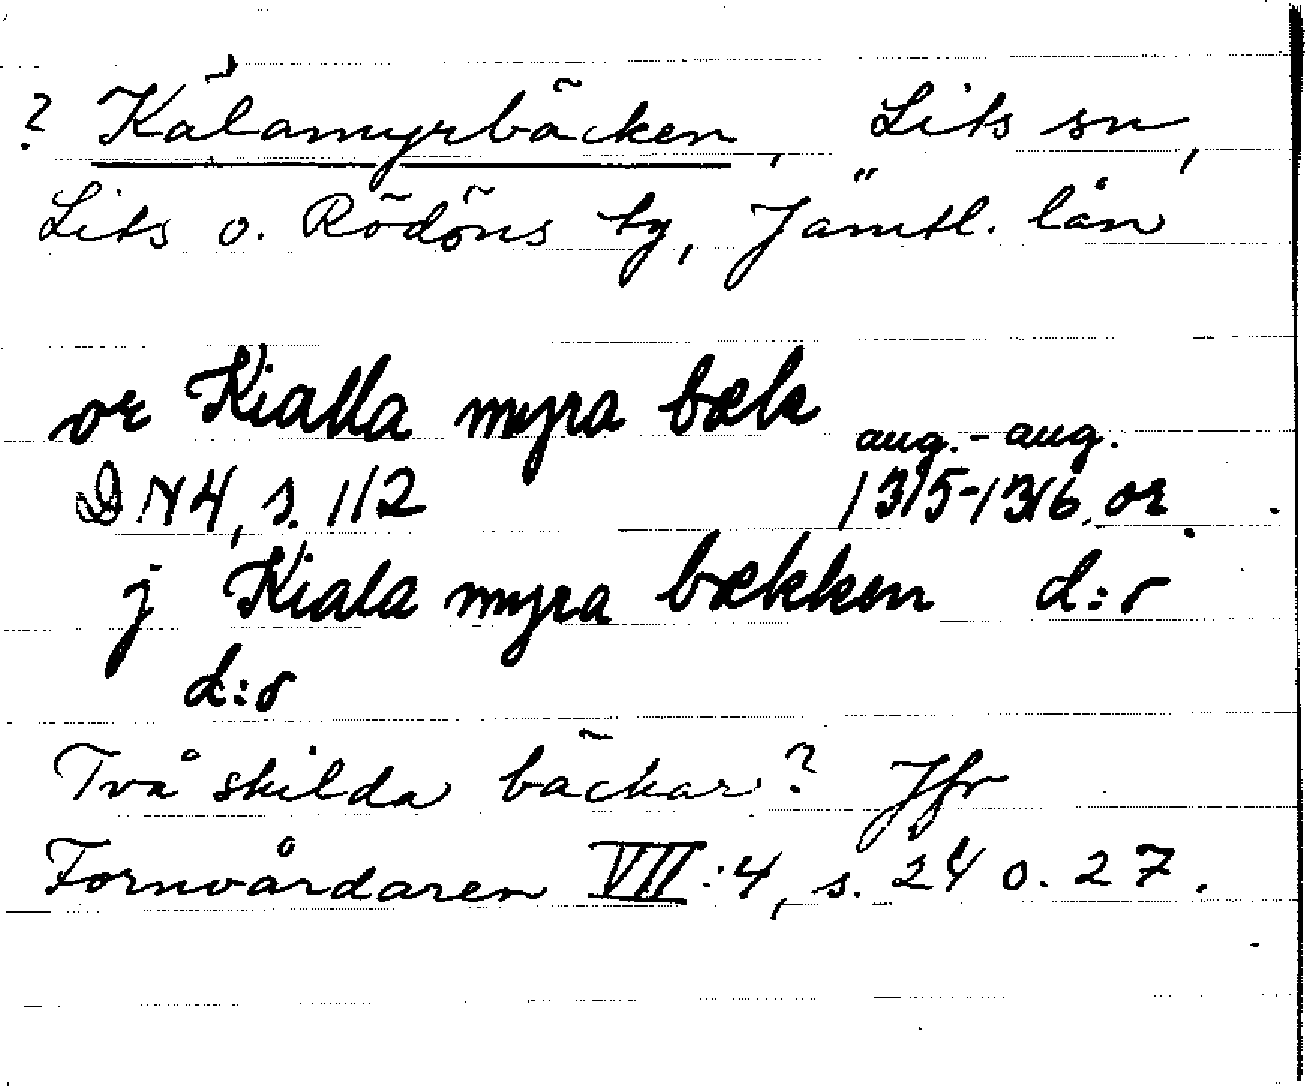 ? Kälamyrbäcken, Lits sn,
Lits o. Rödöns tg, Jämtl. län
or Kialla myra bæk
aug.-aug.
DN4, s. 112 1315-1316, or.
j Kiala myra bækken d:o
d:o
Två skilda bäckar? Jfr
Fornvårdaren VII:4, s. 24 o. 27.